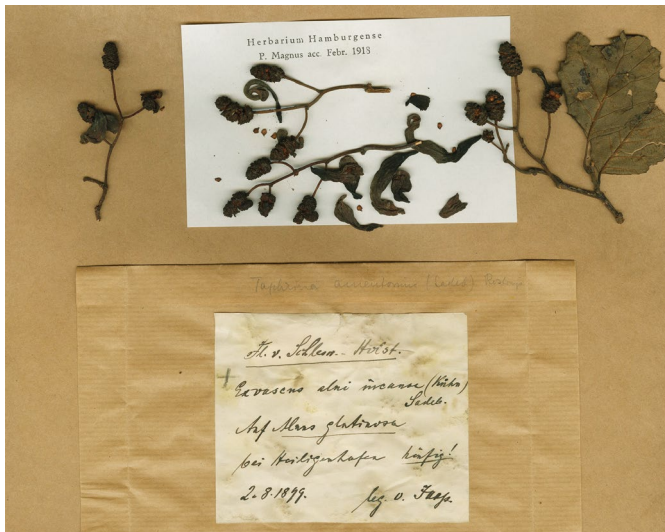 Herbarium Hamburgense
P. Magnus acc. Febr. 1918
Taphrina (Sadeb)
Fl. v. Schlesw.-Holst.
+
Exoascus alni incanae (Kühn)
Sadeb.
Auf Alnus glutinosa
bei Heiligenhafen häufig!
2.8.1899.
leg. v.